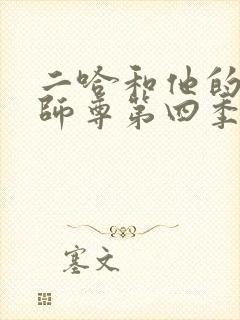 二哈和他的
師尊第四季
塞文